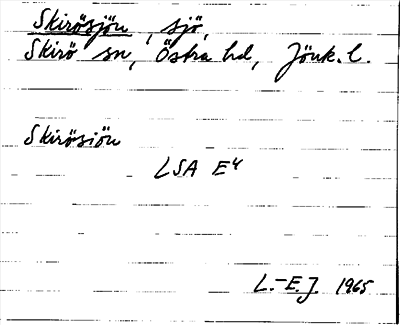 Skirösjön, sjö,
Skirö sn, Östra hd, Jönk. l.
Skirösiön
LSA E4
L.-E.J. 1965